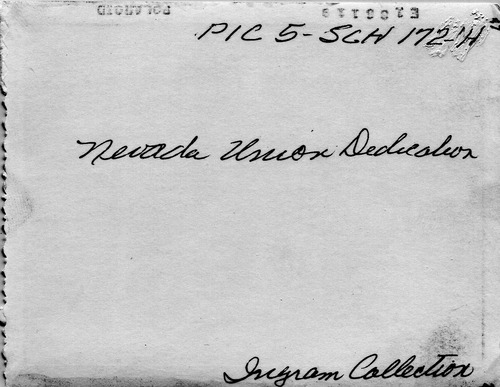 POLAROID
PIC 5-SCH 172-H
Nevada Union Dedication
Ingram Collection